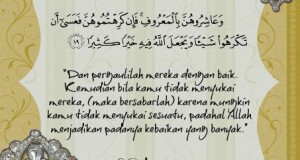 وَعَاشِرُوهُنَّ بِالْمَعْرُوفِ ۚ فَإِن كَرِهْتُمُوهُنَّ فَعَسَىٰ أَن
تَكْرَهُوا شَيْئًا وَيَجْعَلَ اللَّهُ فِيهِ خَيْرًا كَثِيرًا ﴿١٩﴾
"Dan pergaulilah mereka dengan baik.
Kemudian bila kamu tidak menyukai
mereka, (maka bersabarlah) karena mungkin
kamu tidak menyukai sesuatu, padahal Allah
menjadikan padanya kebaikan yang banyak."